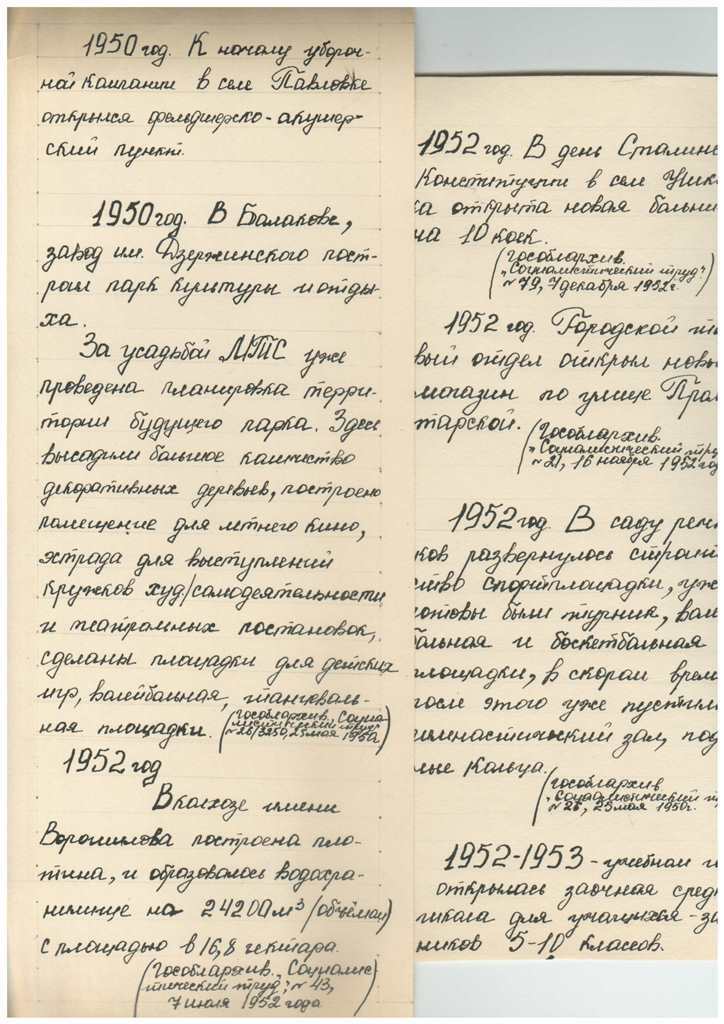 1950 год. К началу убороч-
ной кампании в селе Павловке
открылся фельдшерско-акушер-
ский пункт.
1950 год. В Балакове,
завод им. Дзержинского пост-
роил парк культуры и отды-
ха.
За усадьбой МТС уже
проведена планировка терри-
тории будущего парка. Здесь
высадили большое количество
декоративных деревьев, построено
помещение для летнего кино,
эстрада для выступлений
кружков худ/самодеятельности
и театральных постановок,
сделаны площадки для детских
игр, волейбольная, танцеваль-
ная площадки. (Гособлархив, „Социа-
листический труд"
№ 26/3250, 25 мая 1950г.)
1952 год
В колхозе имени
Ворошилова построена пло-
тина, и образовалось водохра-
нилище на 24200 м³ (объёмом)
с площадью в 16,8 гектара.
(Гособлархив., „Социалис-
тический труд", № 43,
7 июля 1952 года
1952 год. В день Сталинс
Конституции в селе
ка открыта новая больни
на 10 коек.
(Гособлархив.
„Социалистический труд")
№ 79, 7 декабря 1952г.
1952 год. Городской то
вый отдел открыл новы
магазин по улице Прол
тарской.
(Гособлархив.
„Социалистический тру
№ 21, 16 ноября 1952 год
1952 год. В саду речн
ков развернулось строит
ство спортплощадки, уже
готовы были турник, вол
больная и боскетбольная
площадки, в скором врем
после этого уже пустили
гимнастический зал, под
ные кольца.
(Гособлархив
„Социалистический т
№ 26, 25 мая 1950г.
1952-1953 - учебном г
открылась заочная сред
школа для учащихся - за
ников 5-10 классов.